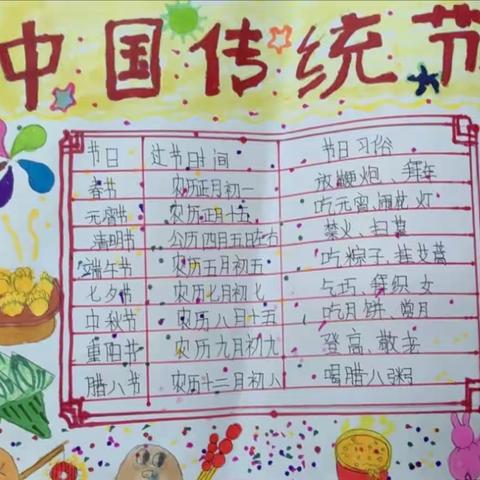 中国传统节
节日 过节日时间 节日习俗
春节 农历正月初一 放鞭炮、拜年
元宵节 农历正月十五 吃元宵、闹花灯
清明节 公历四月五日左右 禁火、扫墓
端午节 农历五月初五 吃粽子、挂艾蒿
七夕节 农历七月初七 乞巧、拜织女
中秋节 农历八月十五 吃月饼、赏月
重阳节 农历九月初九 登高、敬老
腊八节 农历十二月初八 喝腊八粥